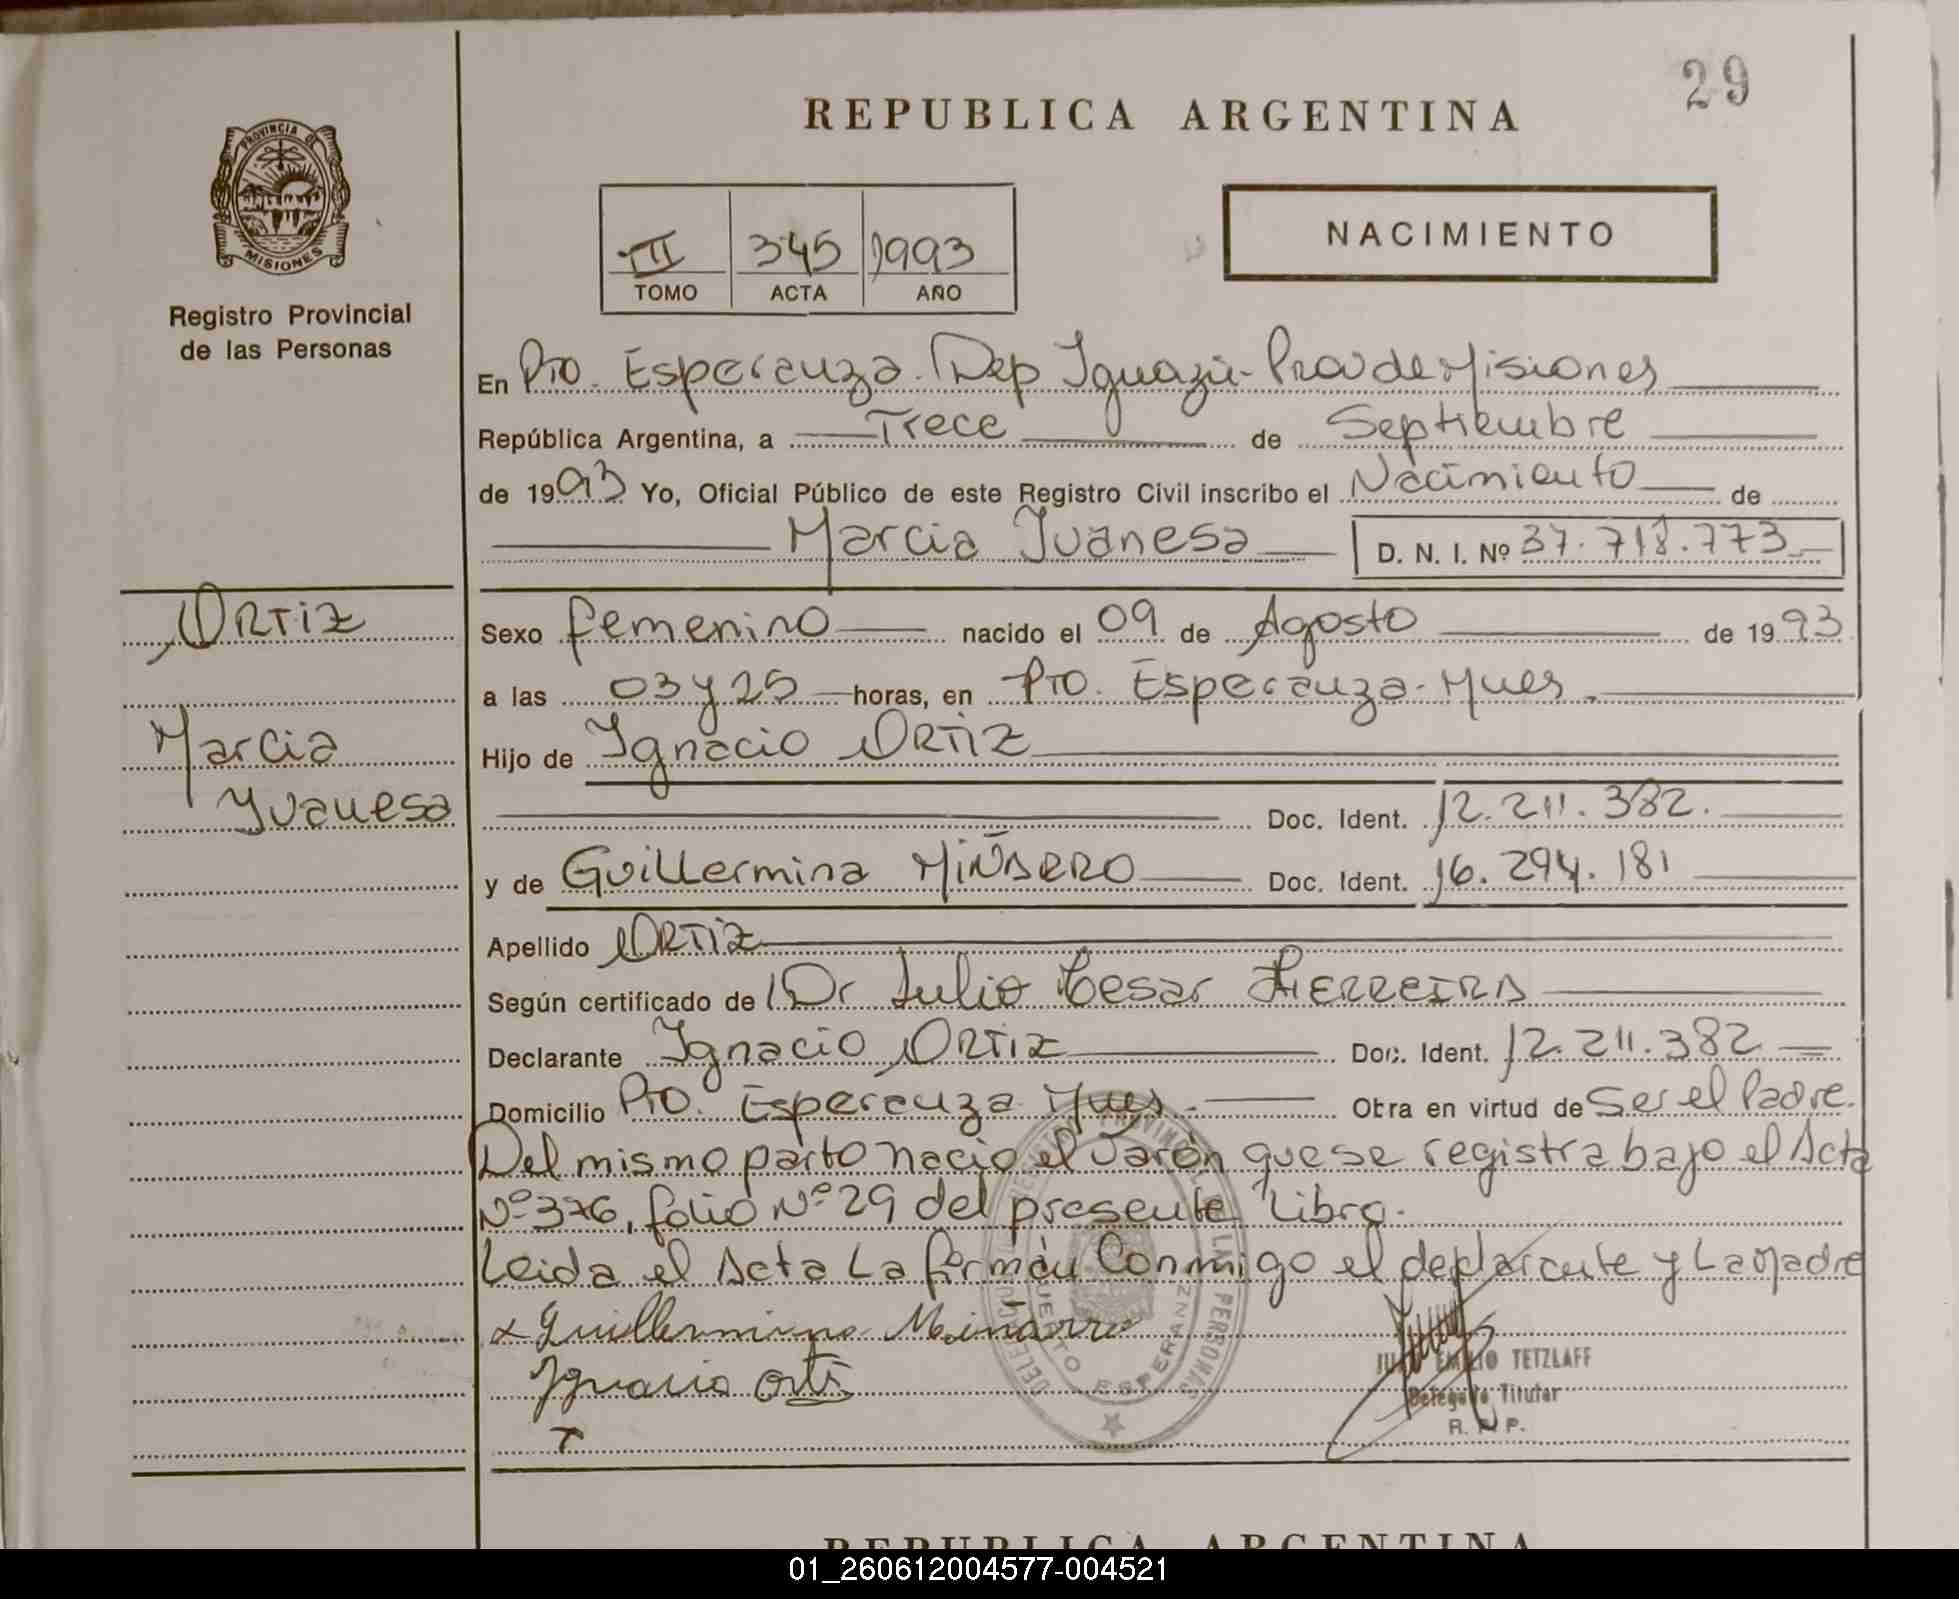 29
REPUBLICA ARGENTINA
PROVINCIA DE
MISIONES
Registro Provincial
de las Personas
III 345 1993
TOMO ACTA AÑO
NACIMIENTO
En Pto. Esperanza. Dep Iguazú - Prov de Misiones
República Argentina, a Trece de Septiembre
de 1993 Yo, Oficial Público de este Registro Civil inscribo el Nacimiento de
Marcia Ivanesa D. N. I. Nº 37.718.773
Ortiz
Marcia
Ivanesa
Sexo femenino nacido el 09 de Agosto de 1993
a las 03 y 25 horas, en Pto. Esperanza - Mnes.
Hijo de Ignacio Ortiz
Doc. Ident. 12.211.382.
y de Guillermina Miñarro Doc. Ident. 16.294.181
Apellido Ortiz
Según certificado de Dr Julio Cesar Herreira
Declarante Ignacio Ortiz Doc. Ident. 12.211.382
Domicilio Pto. Esperanza Mnes. Obra en virtud de Ser el Padre.
Del mismo parto nacio el varón que se registra bajo el Acta
Nº 376, folio Nº 29 del presente Libro.
Leida el Acta La firmán Conmigo el declarante y La Madre
x Guillermina Miñarro
Ignacio Orti
PROVINCIAL DE LAS PERSONAS
PUERTO ESPERANZA
EMILIO TETZLAFF
Delegado Titular
R. P. P.
REPUBLICA ARGENTINA
01_260612004577-004521